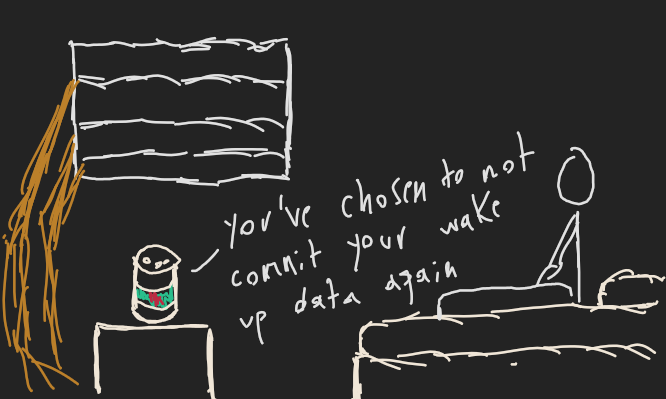 you've chosen to not
commit your wake
up data again